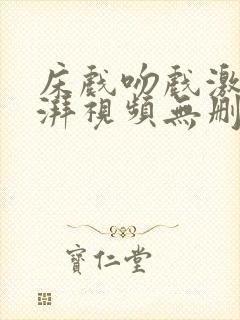 床戲吻戲激
湃視頻無刪
寶仁堂